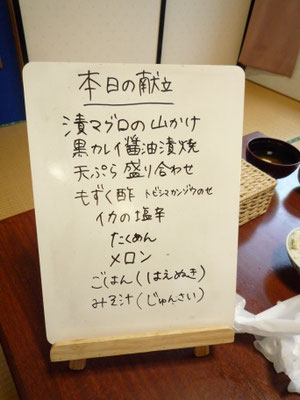 本日の献立
漬マグロの山かけ
黒カレイ醤油漬焼
天ぷら盛り合わせ
もずく酢 トビシマカンゾウのせ
イカの塩辛
たくあん
メロン
ごはん(はえぬき)
みそ汁(じゅんさい)